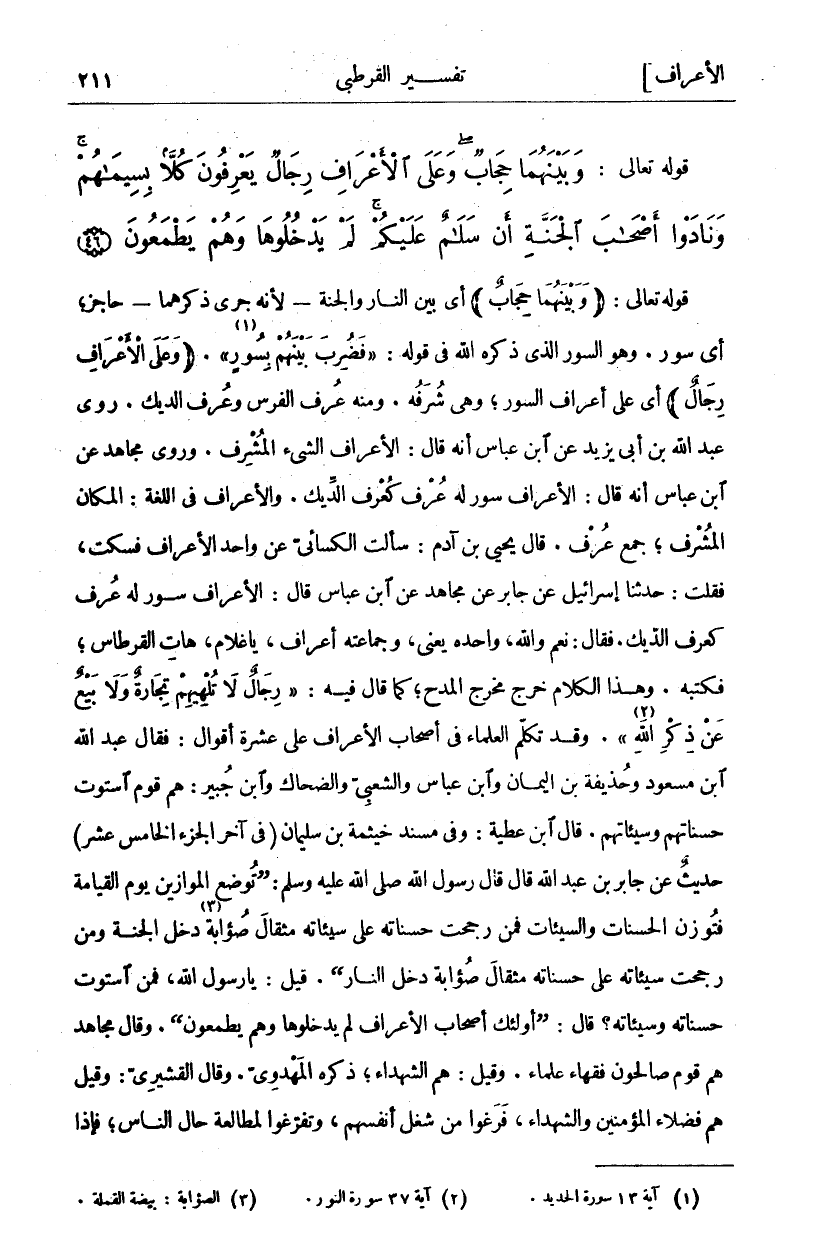 الأعراف]    تفسير القرطبى    ٢١١
قوله تعالى : وَبَيْنَهُمَا حِجَابٌ ۖ وَعَلَى ٱلْأَعْرَافِ رِجَالٌ يَعْرِفُونَ كُلًّا بِسِيمَـٰهُمْ ۚ
وَنَادَوْا أَصْحَـٰبَ ٱلْجَنَّةِ أَن سَلَـٰمٌ عَلَيْكُمْ ۚ لَمْ يَدْخُلُوهَا وَهُمْ يَطْمَعُونَ ﴿٤٦﴾
قوله تعالى : ﴿ وَبَيْنَهُمَا حِجَابٌ ﴾ أى بين النار والجنة — لأنه جرى ذكرهما — حاجز؛
أى سور . وهو السور الذى ذكره الله فى قوله : «فَضُرِبَ بَيْنَهُمْ بِسُورٍ(١)» . ﴿ وَعَلَى الْأَعْرَافِ
رِجَالٌ ﴾ أى على أعراف السور ؛ وهى شُرَفُه . ومنه عُرف الفرس وعُرف الديك . روى
عبد الله بن أبى يزيد عن آبن عباس أنه قال : الأعراف الشىء المُشْرِف . وروى مجاهد عن
آبن عباس أنه قال : الأعراف سور له عُرْف كعُرْف الدِّيك . والأعراف فى اللغة : المكان
المُشْرِف ؛ جمع عُرْف . قال يحيى بن آدم : سألت الكسائىّ عن واحد الأعراف فسكت،
فقلت : حدثنا إسرائيل عن جابر عن مجاهد عن آبن عباس قال : الأعراف سور له عُرف
كعرف الديك. فقال: نعم والله، واحده يعنى، وجماعته أعراف ، ياغلام، هات القرطاس ؛
فكتبه . وهذا الكلام خرج مخرج المدح؛ كما قال فيه : « رِجَالٌ لَا تُلْهِيهِمْ تِجَارَةٌ وَلَا بَيْعٌ
عَنْ ذِكْرِ اللَّهِ(٢) » . وقد تكلّم العلماء فى أصحاب الأعراف على عشرة أقوال : فقال عبد الله
آبن مسعود وحُذيفة بن اليمان وآبن عباس والشعبىّ والضحاك وآبن جُبير : هم قوم آستوت
حسناتهم وسيئاتهم . قال آبن عطية : وفى مسند خيثمة بن سليمان (فى آخر الجزء الخامس عشر)
حديثٌ عن جابر بن عبد الله قال قال رسول الله صلى الله عليه وسلم: ”تُوضع الموازين يوم القيامة
فتُوزن الحسنات والسيئات فمن رجحت حسناته على سيئاته مثقالَ صُؤابة(٣) دخل الجنة ومن
رجحت سيئاته على حسناته مثقالَ صُؤابة دخل النار“ . قيل : يارسول الله، فمن آستوت
حسناته وسيئاته؟ قال : ”أولئك أصحاب الأعراف لم يدخلوها وهم يطمعون“ . وقال مجاهد
هم قوم صالحون فقهاء علماء . وقيل : هم الشهداء ؛ ذكره المَهْدوِىّ . وقال القشيرىّ : وقيل
هم فضلاء المؤمنين والشهداء ، فَرَغوا من شغل أنفسهم ، وتفرّغوا لمطالعة حال الناس ؛ فإذا
(١) آية ١٣ سورة الحديد .    (٢) آية ٣٧ سورة النور .    (٣) الصؤابة : بيضة القملة .